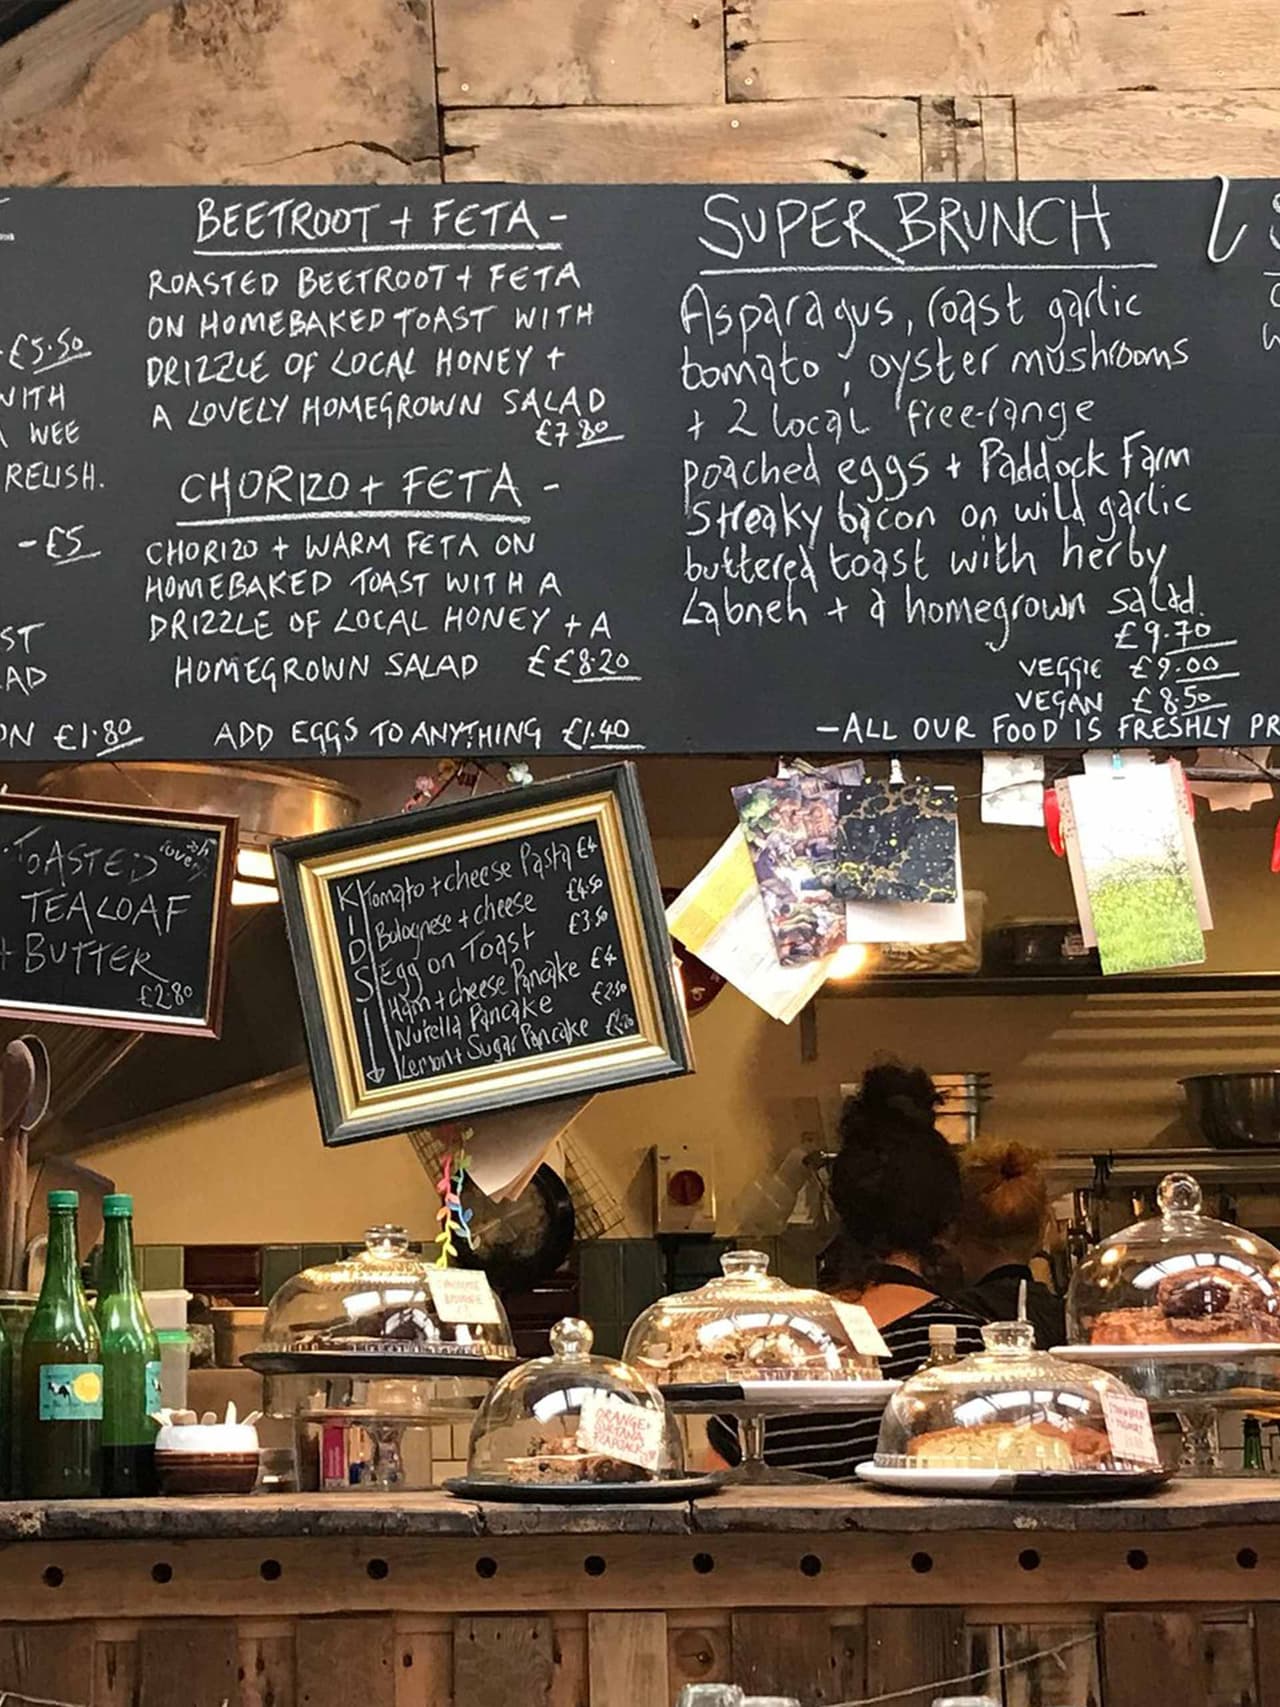 £5.50
WITH
WEE
RELISH.
- £5
ST
AD
ON £1.80
BEETROOT + FETA -
ROASTED BEETROOT + FETA
ON HOMEBAKED TOAST WITH
DRIZZLE OF LOCAL HONEY +
A LOVELY HOMEGROWN SALAD
£7.80
CHORIZO + FETA -
CHORIZO + WARM FETA ON
HOMEBAKED TOAST WITH A
DRIZZLE OF LOCAL HONEY + A
HOMEGROWN SALAD ££8.20
ADD EGGS TO ANYTHING £1.40
SUPER BRUNCH
Asparagus, roast garlic
tomato, oyster mushrooms
+ 2 local free-range
poached eggs + Paddock Farm
Streaky bacon on wild garlic
buttered toast with herby
Labneh + a homegrown salad.
£9.70
VEGGIE £9.00
VEGAN £8.50
-ALL OUR FOOD IS FRESHLY PR
TOASTED
TEALOAF
+ BUTTER
£2.80
KIDS
Tomato + cheese Pasta £4
Bolognese + cheese £4.50
Egg on Toast £3.50
Ham + cheese Pancake £4
Nutella Pancake £2.50
Lemon + Sugar Pancake
ORANGE +
SULTANA
FLAPJACK